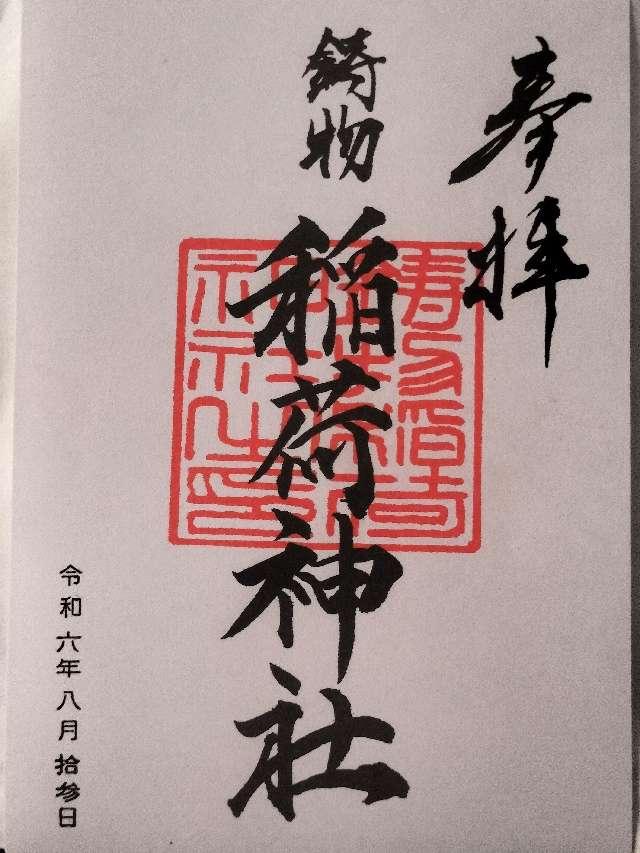 奉拝
鋳物
稲荷神社
令和六年八月拾参日